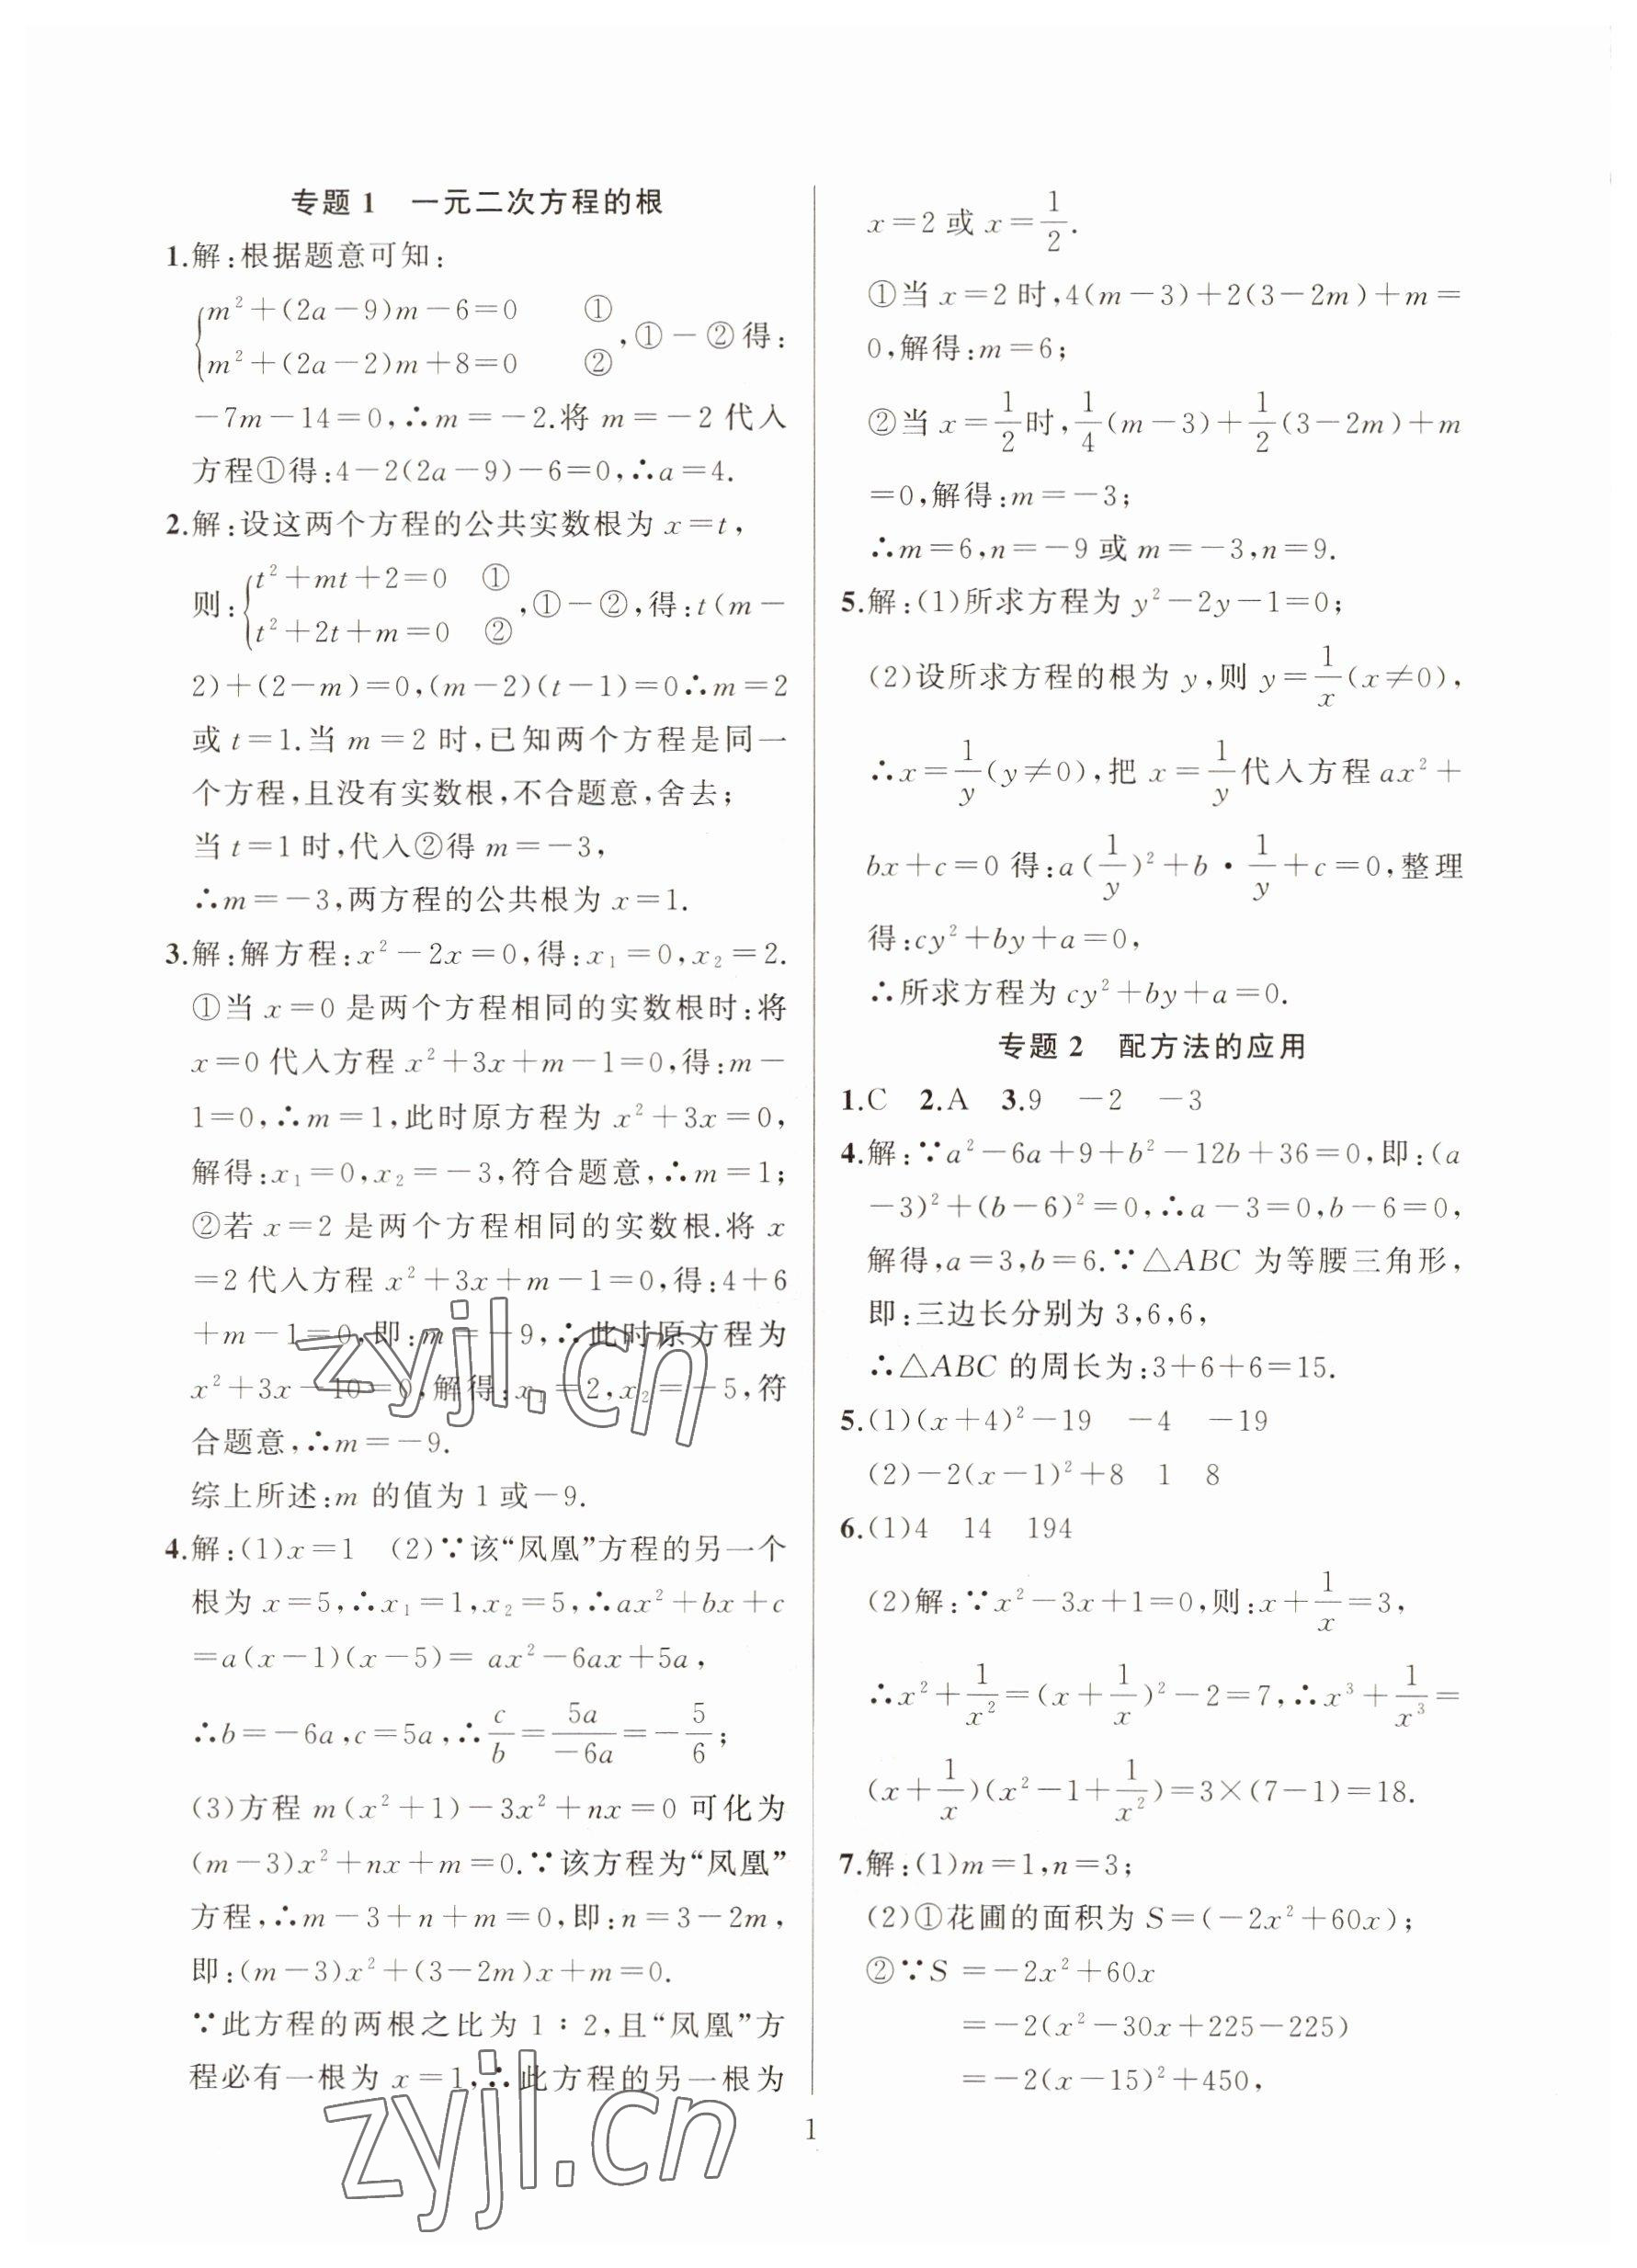 专题 1 一元二次方程的根
1.解:根据题意可知:
{m²+(2a-9)m-6=0 ①
m²+(2a-2)m+8=0 ② ,①-②得:
-7m-14=0,∴m=-2.将 m=-2 代入
方程①得:4-2(2a-9)-6=0,∴a=4.
2.解:设这两个方程的公共实数根为 x=t,
则:{t²+mt+2=0 ①
t²+2t+m=0 ② ,①-②,得:t(m-
2)+(2-m)=0,(m-2)(t-1)=0∴m=2
或 t=1.当 m=2 时,已知两个方程是同一
个方程,且没有实数根,不合题意,舍去;
当 t=1 时,代入②得 m=-3,
∴m=-3,两方程的公共根为 x=1.
3.解:解方程:x²-2x=0,得:x₁=0,x₂=2.
①当 x=0 是两个方程相同的实数根时:将
x=0 代入方程 x²+3x+m-1=0,得:m-
1=0,∴m=1,此时原方程为 x²+3x=0,
解得:x₁=0,x₂=-3,符合题意,∴m=1;
②若 x=2 是两个方程相同的实数根.将 x
=2 代入方程 x²+3x+m-1=0,得:4+6
+m-1=0,即:m=-9,∴此时原方程为
x²+3x-10=0,解得:x₁=2,x₂=-5,符
合题意,∴m=-9.
综上所述:m 的值为 1 或-9.
4.解:(1)x=1 (2)∵该“凤凰”方程的另一个
根为 x=5,∴x₁=1,x₂=5,∴ax²+bx+c
=a(x-1)(x-5)= ax²-6ax+5a,
∴b=-6a,c=5a,∴c/b=5a/-6a=-5/6;
(3)方程 m(x²+1)-3x²+nx=0 可化为
(m-3)x²+nx+m=0.∵该方程为“凤凰”
方程,∴m-3+n+m=0,即:n=3-2m,
即:(m-3)x²+(3-2m)x+m=0.
∵此方程的两根之比为 1∶2,且“凤凰”方
程必有一根为 x=1,∴此方程的另一根为
x=2 或 x=1/2.
①当 x=2 时,4(m-3)+2(3-2m)+m=
0,解得:m=6;
②当 x=1/2时,1/4(m-3)+1/2(3-2m)+m
=0,解得:m=-3;
∴m=6,n=-9 或 m=-3,n=9.
5.解:(1)所求方程为 y²-2y-1=0;
(2)设所求方程的根为 y,则 y=1/x(x≠0),
∴x=1/y(y≠0),把 x=1/y代入方程 ax²+
bx+c=0 得:a(1/y)²+b·1/y+c=0,整理
得:cy²+by+a=0,
∴所求方程为 cy²+by+a=0.
专题 2 配方法的应用
1.C 2.A 3.9 -2 -3
4.解:∵a²-6a+9+b²-12b+36=0,即:(a
-3)²+(b-6)²=0,∴a-3=0,b-6=0,
解得,a=3,b=6.∵△ABC 为等腰三角形,
即:三边长分别为 3,6,6,
∴△ABC 的周长为:3+6+6=15.
5.(1)(x+4)²-19 -4 -19
(2)-2(x-1)²+8 1 8
6.(1)4 14 194
(2)解:∵x²-3x+1=0,则:x+1/x=3,
∴x²+1/x²=(x+1/x)²-2=7,∴x³+1/x³=
(x+1/x)(x²-1+1/x²)=3×(7-1)=18.
7.解:(1)m=1,n=3;
(2)①花圃的面积为 S=(-2x²+60x);
②∵S =-2x²+60x
=-2(x²-30x+225-225)
=-2(x-15)²+450,
1
zyjl.cn
zyjl.cn